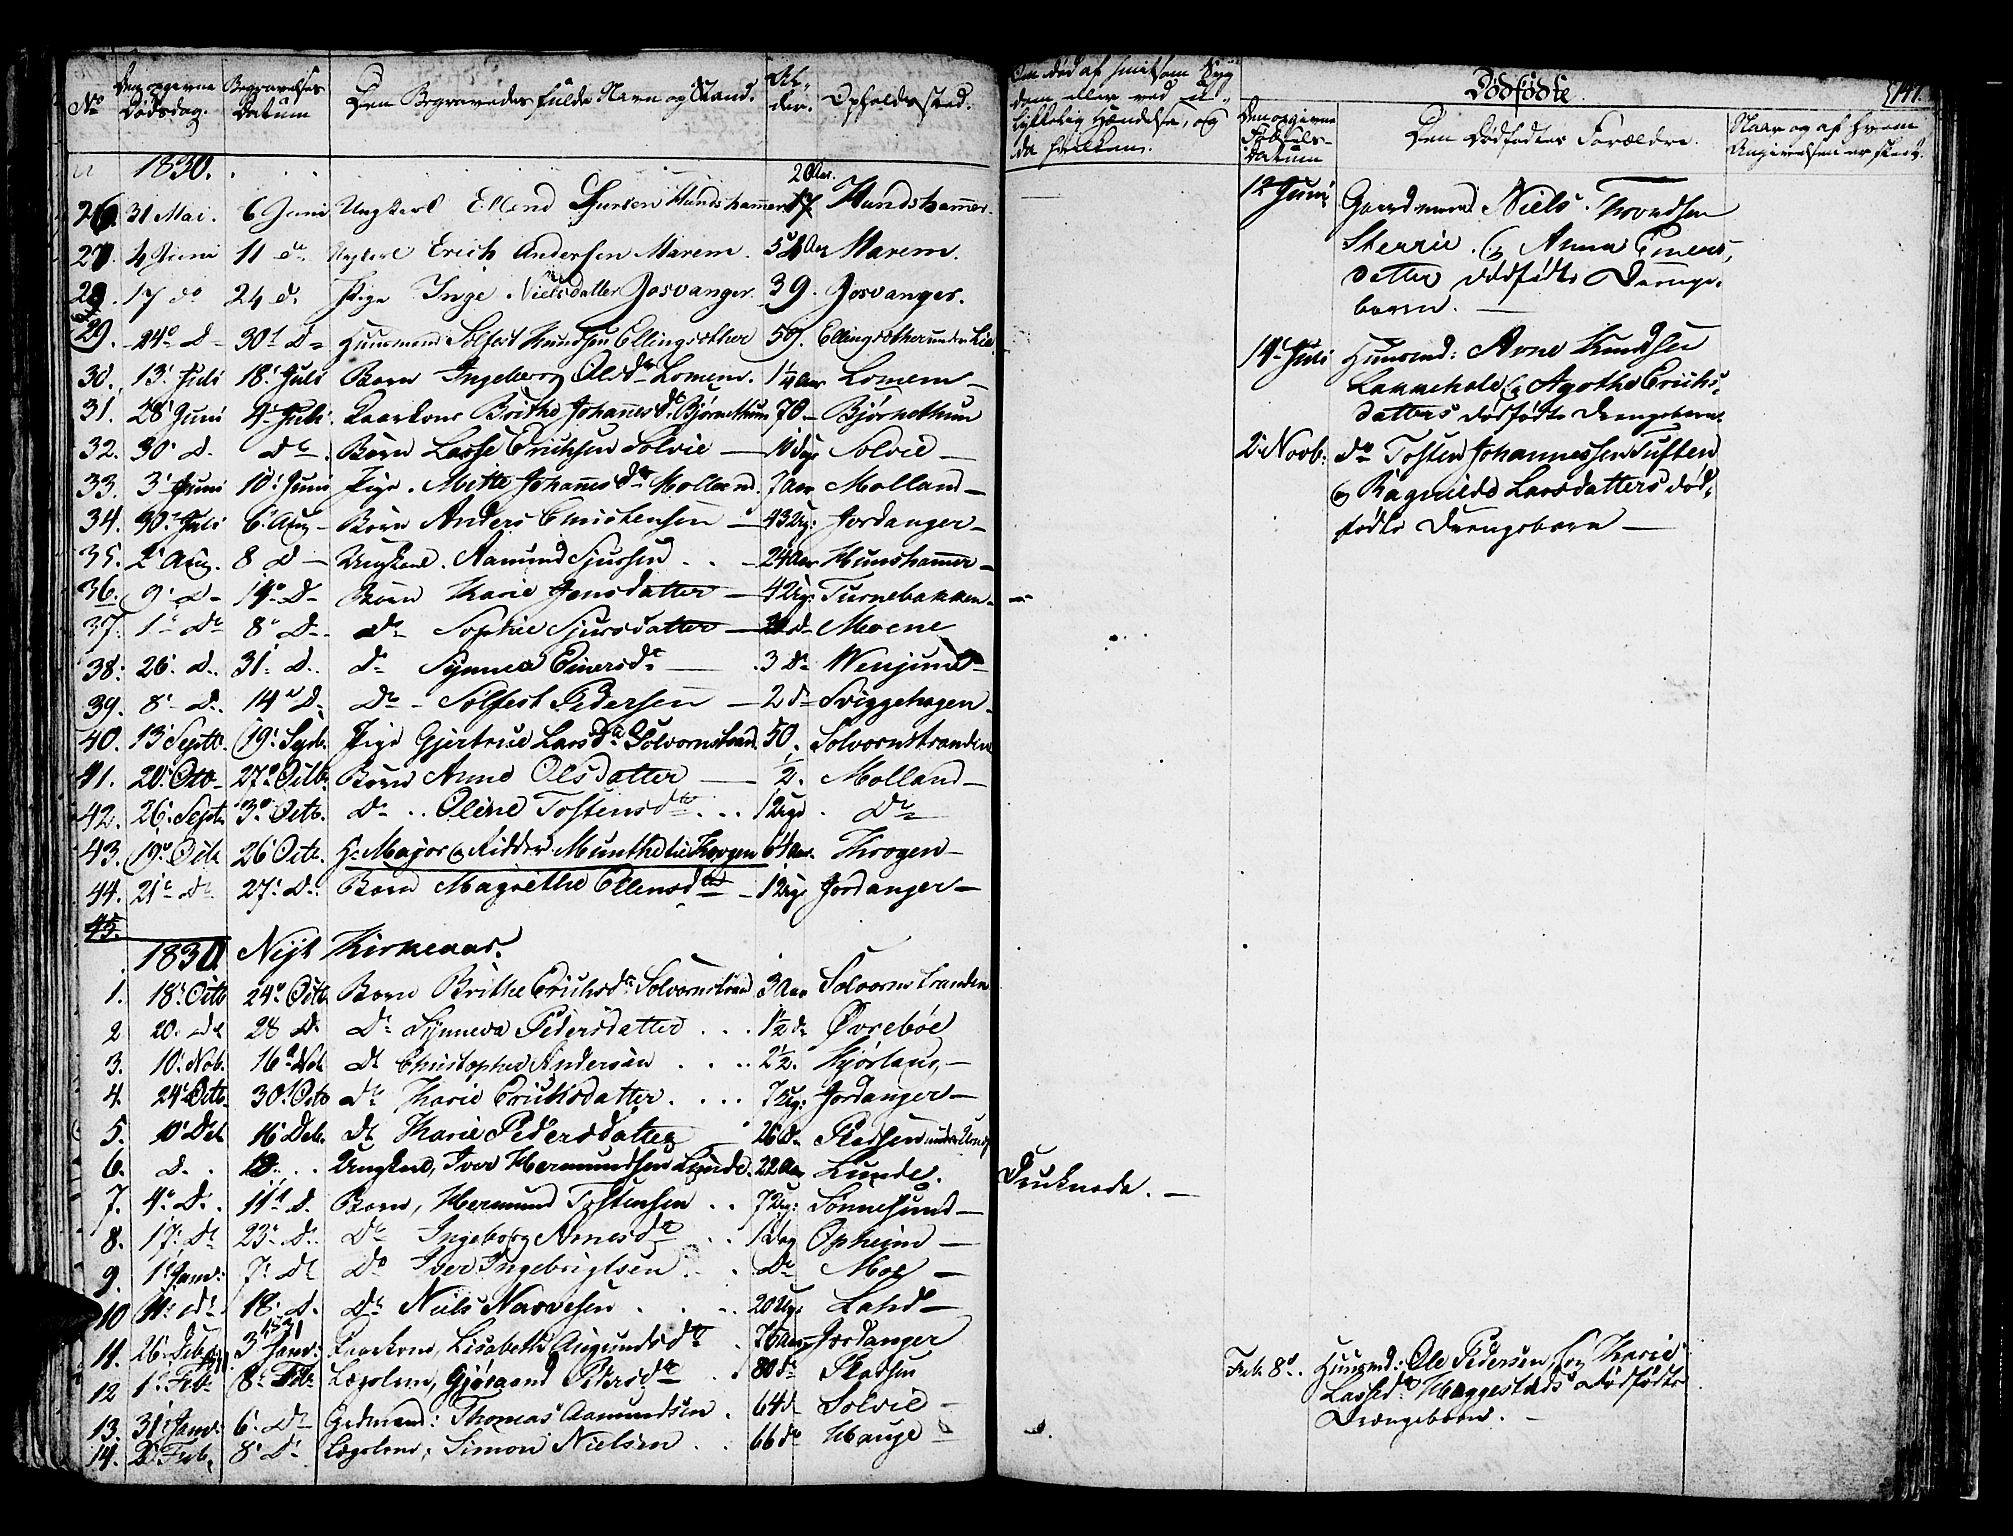 No Den opgivne Dødsdag. Begravelses Datum Den Begravedes fulde Navn og Stand. Alder. Opholdssted.
1830.
26. 31 Mai. 6 Juni Ungkarl Ellend Sjursen Hundshammer 20 Aar. Hundshammer.
27. 4 Juni 11 do Ungkarl Erich Andersen Marem. 54 Aar Marem.
28. 17 do 24 d. Pige Inge Nielsdatter Josvanger. 39. Josvanger.
29. 24 D 30 D Huusmand Solfest Knudsen Ellingsæther 59. Ellingsæther under Lie
30. 13 Juli 18 Juli Barn Ingeborg Olsdr Lomem. 1¼ Aar Lomem
31. 28 Juni 4 Juli Kaarkone Brithe Johannesdr Bjørnethun 70 Bjørnethun
32. 30 D. Do Barn Lasse Erichsen Solvie Solvie
33. 3 Juni 10 Juni Pige. Mette Johannesdr Molland. 7 Aar Molland
34. 30 Juli 6 Aug Barn Anders Christensen 43 Ug: Jordanger
35. 2 Aug. 8 D Ungkarl. Aamund Sjursen 24 Aar Hunshammer
36. 9. D 14 D Barn Karie Jensdatter 4 Ug: Turnebakken
37. 1 Do 8 D. Do Sophie Sjursdatter Moene
38. 26. D. 31. D. Do Synneva Einersdr 3 Do Wenjum
39. 8. D. 14 D. Do Solfest Pedersen 2 do Sviggehagen
40. 13 Septb. 19 Septb. Pige Gjertrue Larsdr Solvornstrand. 50. Solvornstranden
41. 20 Octo 27 Octb. Barn Anne Olsdatter ½. Molland
42. 26. Septr 3 Octb. Do Oline Tostensdr 1 Do
43. 19 Octb 26 Octb. Hr Major og Ridder Munthe til Krogen 64 Aar. Krogen
44. 21 Do 27. D. Barn Magrethe Ellensdr 12 Ug Jordanger
45.
1830 Nyt Kirkeaar.
1. 18 Octb 24 Octb. Barn Brithe Erichsdr Solvornstrand 3 Aar Solvornstranden
2 20. do 28 D. Do Synneva Pedersdatter 1½ do Øvrebøe
3. 10. Nob. 16 Nob Do Christopher Andersen 2½. Kjørlaug
4. 24 Octb. 30 Octo do Karie Erichsdatter 7 Ug: Jordanger
5. 10 Deb 16 Deb. do Karie Pedersdatter 26 D. Pladsen under
6. d. Ungkarl, Iver Hermundsen Lunde. 22 Aar Lunde. Druknede.
7. 4. D. 11 d. Barn, Hermund Tostensen 7 Ug: Sønnesund
8. 17. Do 23. D. Do Ingeborg Arnesdr 1 Dag Opheim
9. 1. Janr: 7. Do Do Iver Ingebrigtsen Do Moe
10 11. do 18. D. Do Niels Narvesen 20 Ug: Lahd
1831
11. 26. Deb. 3 Janr: Kaarkone, Lisabeth Amundsdr 76 Aar Jordanger
12 1. Feb 8. Feb Lægslem, Gjøraand Pedersdr 80 do Pladsen
13. 31 Janr: 6. Do Gadmand: Thomas Aamundsen 64 d Solvie
14. 2 Feb. 8 Do Lægslem, Simon Nielsen 66 do Hauge
Om død af smitsom Syg
dom eller ved u-
lykkelig Hændelse, og
da hvilken.
Dødfødte.
147.
Den opgivne Fødsels-Datum
Den Dødfødtes Forældre.
Naar og af hvem Angivelsen er skeet.
12 Juni Gaardmand Niels Trondsen
Skerrie og Anna Einers-
datter dødfødte Drenge-
barn.
14 Juli Huusmd: Arne Knudsen
og Agathe Erichs-
datters dødfødte Drengebarn
2 Novb: do Tosten Johannessen Tuften
og Ragnilde Larsdatters død-
fødte Drengebarn
Feb. 8. Huusmd: Ole Pedersen og Karie
Lassedr Haggestads dødfødte
Drengebarn.